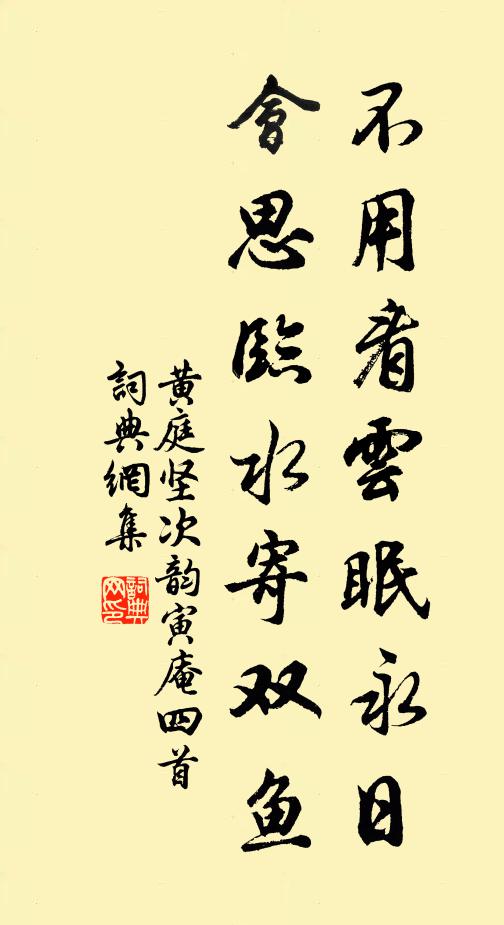 不用看雲眠永日
會思臨水寄双鱼
黄庭坚次韵寅庵四首
詞典網集
詞典
网印